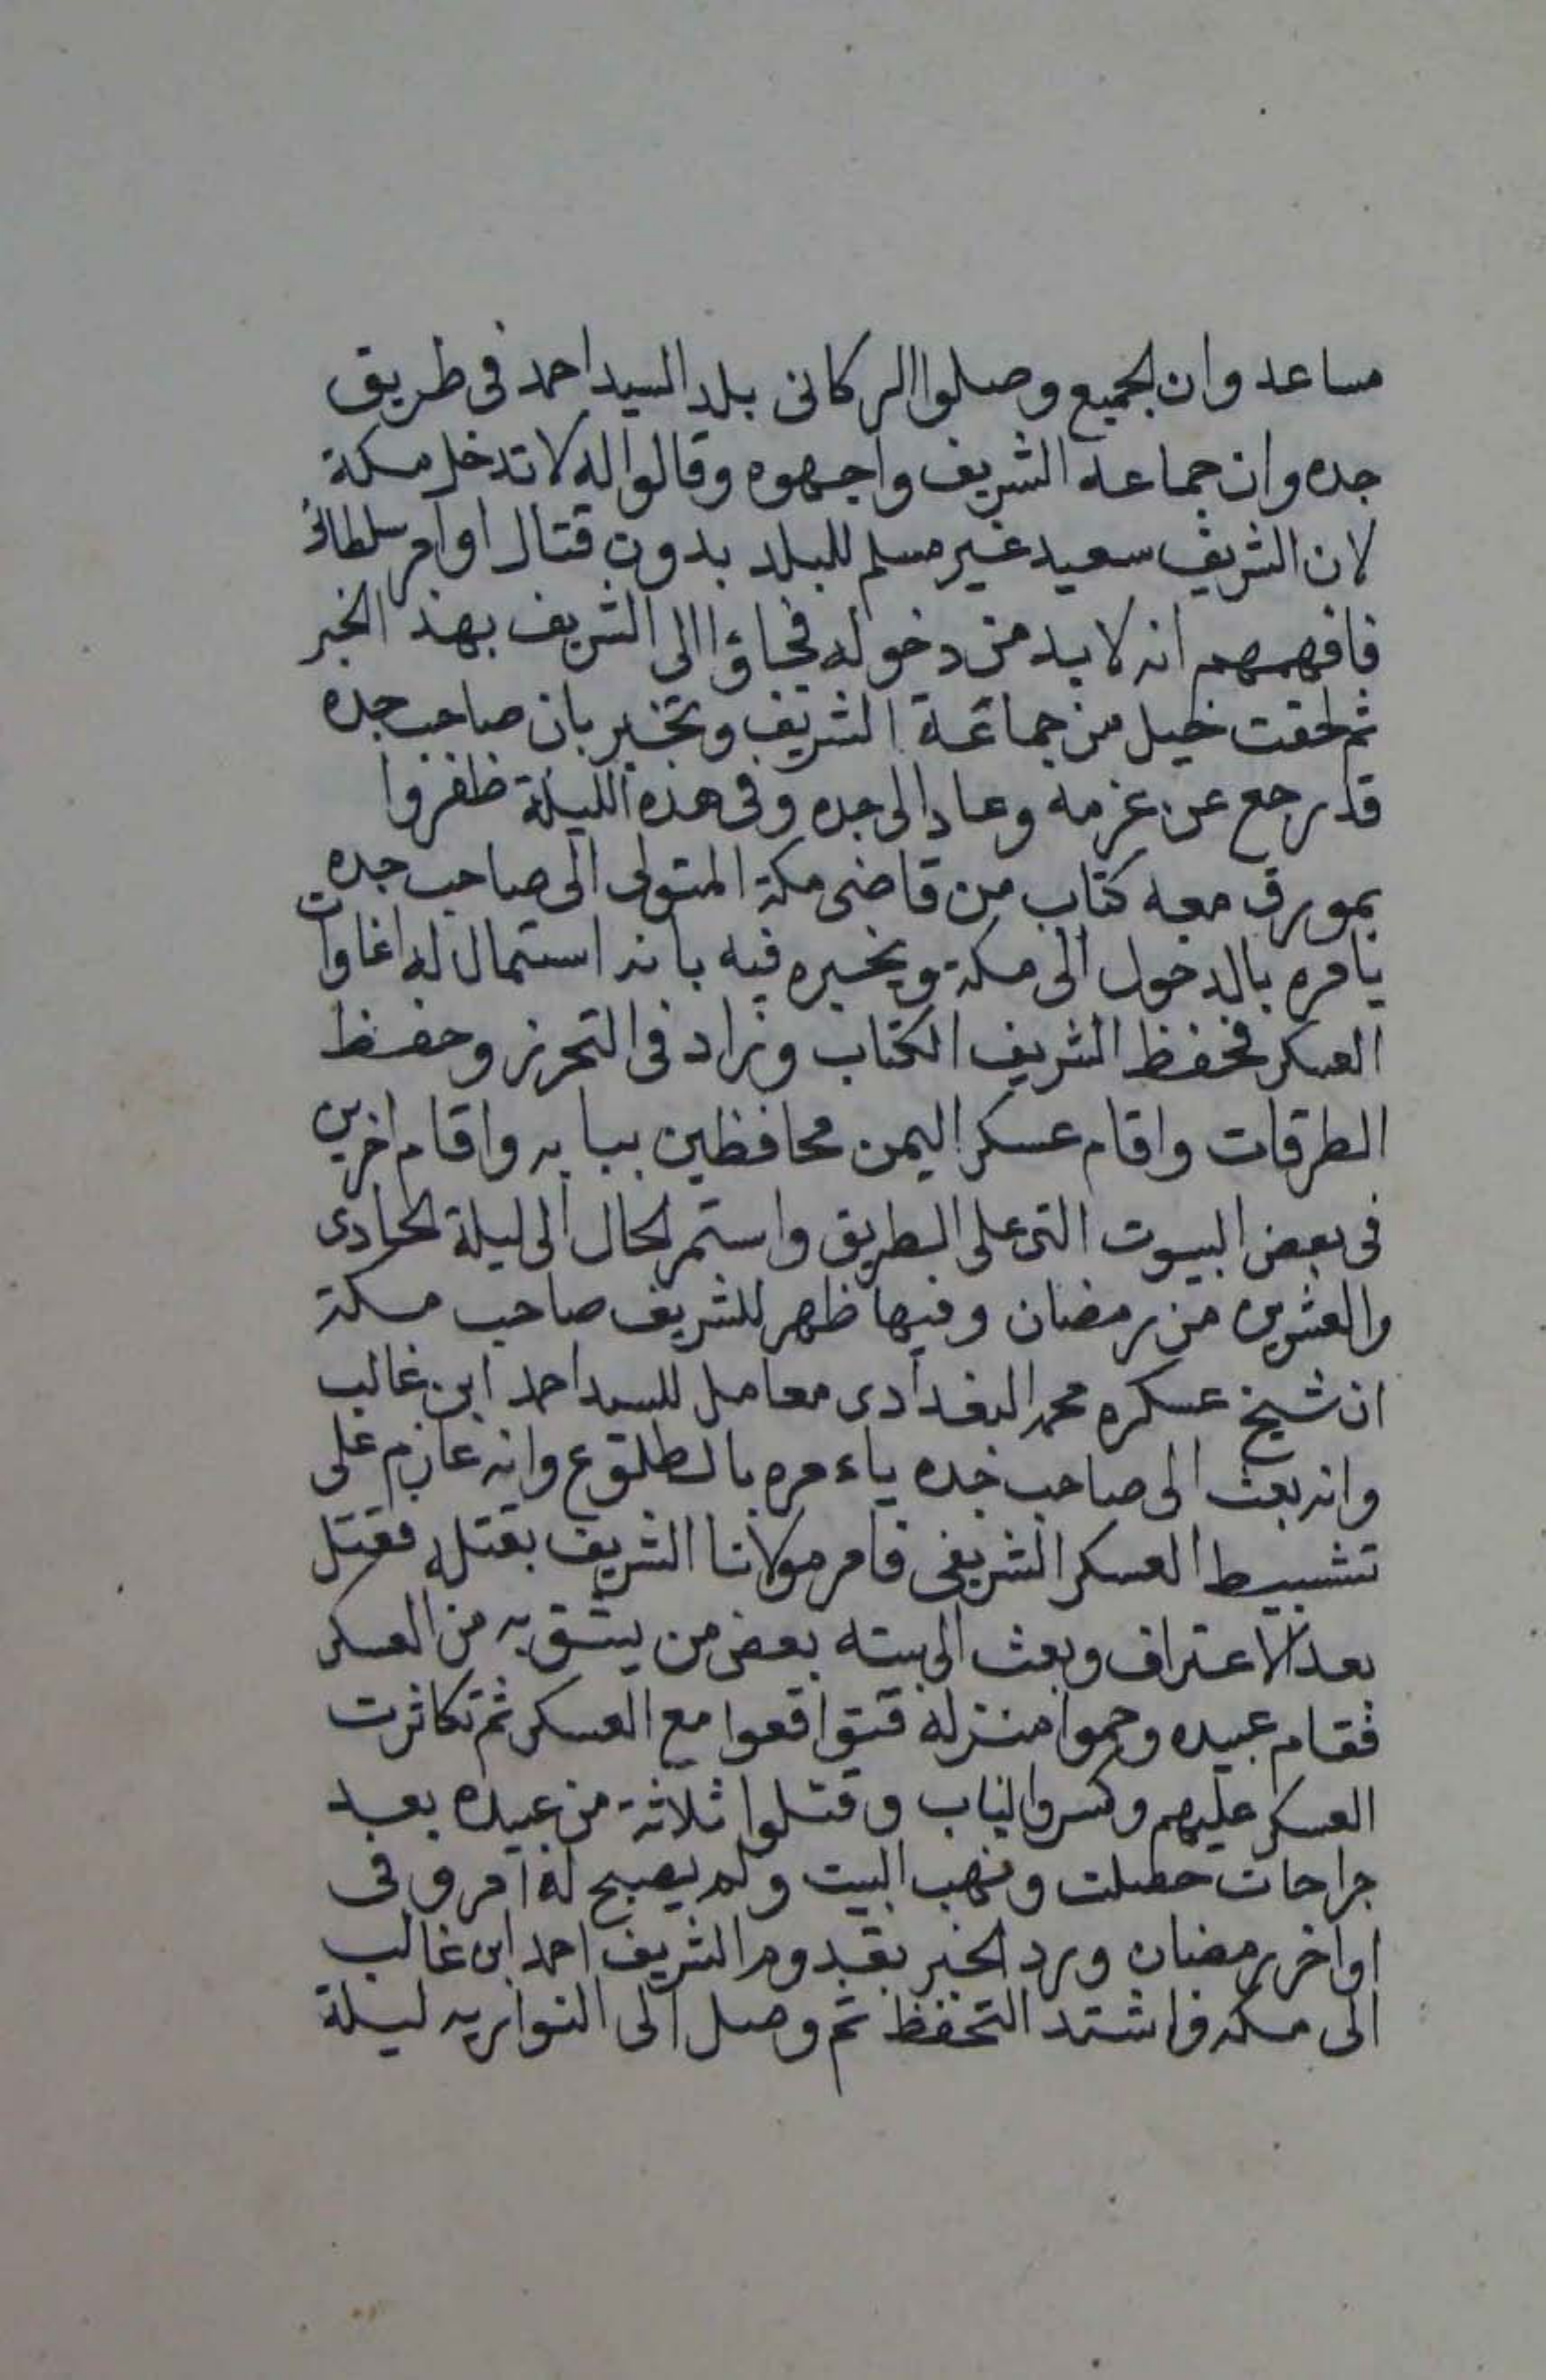 مساعد وان الجميع وصلوا الركانى بلد السيد احمد فى طريق
جده وان جماعة الشريف واجهوه وقالوا له لا تدخل مكة
لان الشريف سعيد غير مسلم للبلد بدون قتال او امر سلطانى
فافهمهم انه لا بد من دخوله فجاؤا الى الشريف بهذ الخبر
ثم لحقت خيل من جماعة الشريف وتخبر بان صاحب جده
قد رجع عن عزمه وعاد الى جده وفى هذه الليلة ظفروا
بمورق معه كتاب من قاضى مكة المتولى الى صاحب جده
يامره بالدخول الى مكة ويخبره فيه بانه استمال له اغاوات
العسكر فحفظ الشريف الكتاب وزاد فى التحرز وحفظ
الطرقات واقام عسكر اليمن محافظين ببابه واقام اخرين
فى بعض البيوت التى على الطريق واستمر الحال الى ليلة الحادى
والعشرين من رمضان وفيها ظهر للشريف صاحب مكة
ان شيخ عسكره محمد البغدادى معامل للسيد احمد ابن غالب
وانه بعث الى صاحب جده ياءمره بالطلوع وانه عازم على
تشبيط العسكر الشريفى فامر مولانا الشريف بقتله فقتل
بعد الاعتراف وبعث الى بيته بعض من يثق به من العسكر
فقام عبيده وحموا منزله فتواقعوا مع العسكر ثم تكاثرت
العسكر عليهم وكسروا الباب وقتلوا ثلاثة من عبيده بعد
جراحات حصلت ونهب البيت ولم يصبح له امر وفى
اواخر رمضان ورد الخبر بقدوم الشريف احمد ابن غالب
الى مكه واشتد التحفظ ثم وصل الى النواريه ليلة